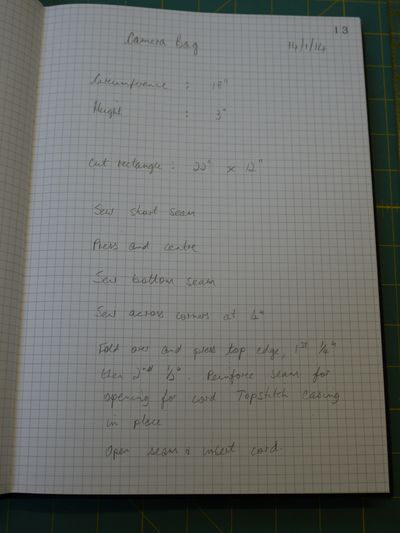 13
Camera Bag 14/1/14
Circumference : 18"
Height : 3"
Cut rectangle : 22" x 12"
Sew short seam
Press and centre
Sew bottom seam
Sew across corners at 4"
Fold over and press top edge, 1st 1/4"
then 2nd 1/2". Reinforce seam for
opening for cord Topstitch casing
in place
Open seam & insert cord.